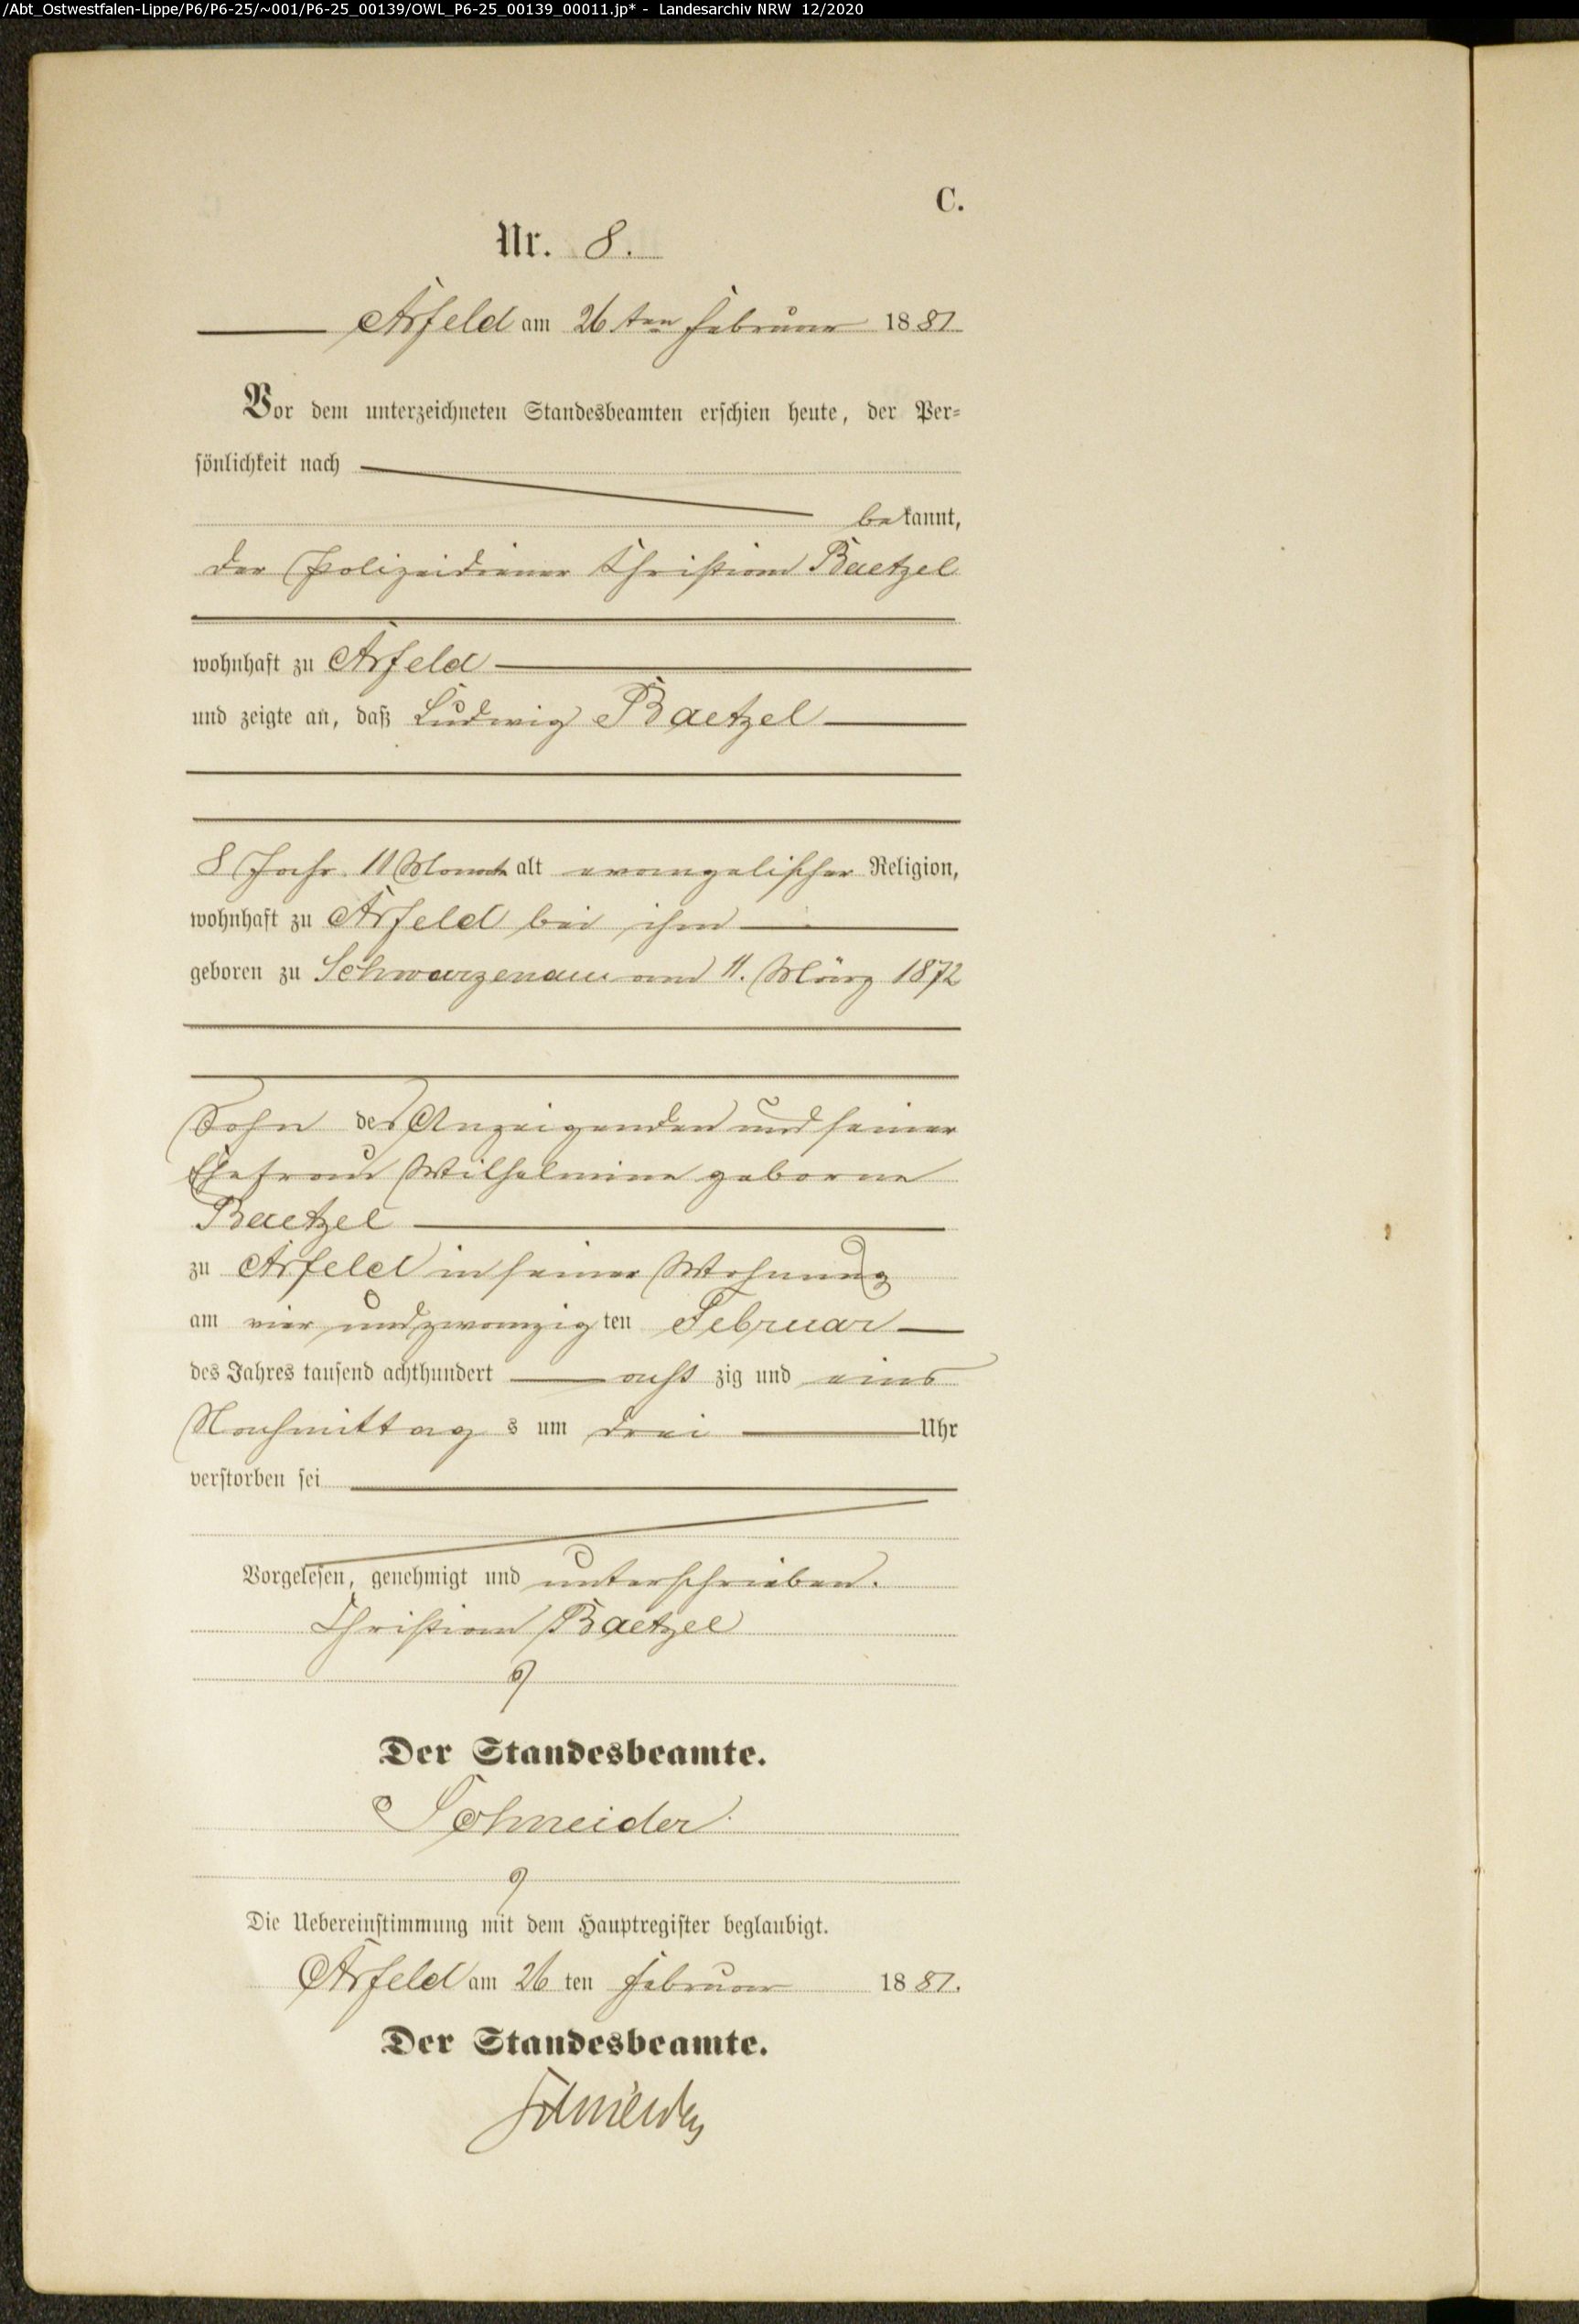 /Abt_Ostwestfalen-Lippe/P6/P6-25/~001/P6-25_00139/OWL_P6-25_00139_00011.jp* - Landesarchiv NRW 12/2020
C.
Nr. 8.
Arfeld am 26 ten Februar 1881
Vor dem unterzeichneten Standesbeamten erschien heute, der Per=
sönlichkeit nach
bekannt,
der Polizeidiener Christian Baetzel
wohnhaft zu Arfeld
und zeigte an, daß Ludwig Baetzel
8 Jahr 11 Monat alt evangelischer Religion,
wohnhaft zu Arfeld bei ihm
geboren zu Schwarzenau am 11. März 1872
Sohn des Anzeigenden und seiner
Ehefrau Wilhelmine geborne
Baetzel
zu Arfeld in seiner Wohnung
am vier undzwanzigten Februar
des Jahres tausend achthundert acht zig und eins
Nachmittags um drei Uhr
verstorben sei
Vorgelesen, genehmigt und unterschrieben.
Christian Baetzel
Der Standesbeamte.
Schneider
Die Uebereinstimmung mit dem Hauptregister beglaubigt.
Arfeld am 26 ten Februar 1881.
Der Standesbeamte.
Schneider